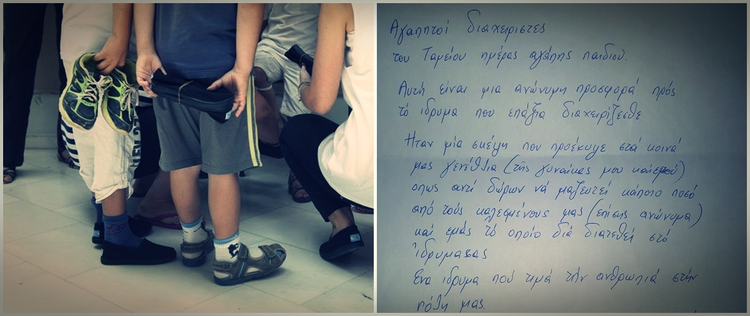 Αγαπητοί διαχειριστές
του Ταμείου ημέρας αγάπης παιδιού.
Αυτή είναι μια ανώνυμη προσφορά πρός
τό ιδρυμα που επάξια διαχειρίζεσθε
Ηταν μία σκέψη που προέκυψε στά κοινά
μας γενέθλια (τής γυναίκας μου και εμού)
οπως αντί δώρων νά μαζευτεί κάποιο ποσό
από τούς καλεσμένους μας (επίσης ανώνυμα)
και εμάς τό οποίο θιά διατεθεί στό
ίδρυμα σας
Ενα ιδρυμα πού τιμά τήν ανθρωπιά στήν
πόλη μας.